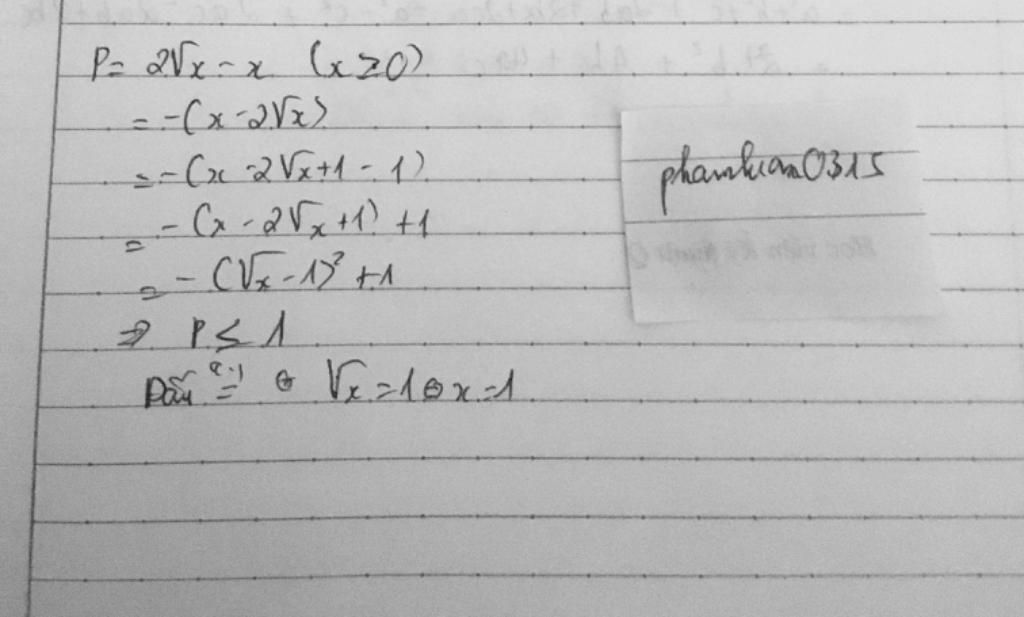 P = 2√x - x (x ≥ 0)
= -(x - 2√x)
= -(x - 2√x + 1 - 1)
= -(x - 2√x + 1) + 1
= -(√x - 1)² + 1
⇒ P ≤ 1
Dấu "=" ⇔ √x = 1 ⇔ x = 1
phamluan0315